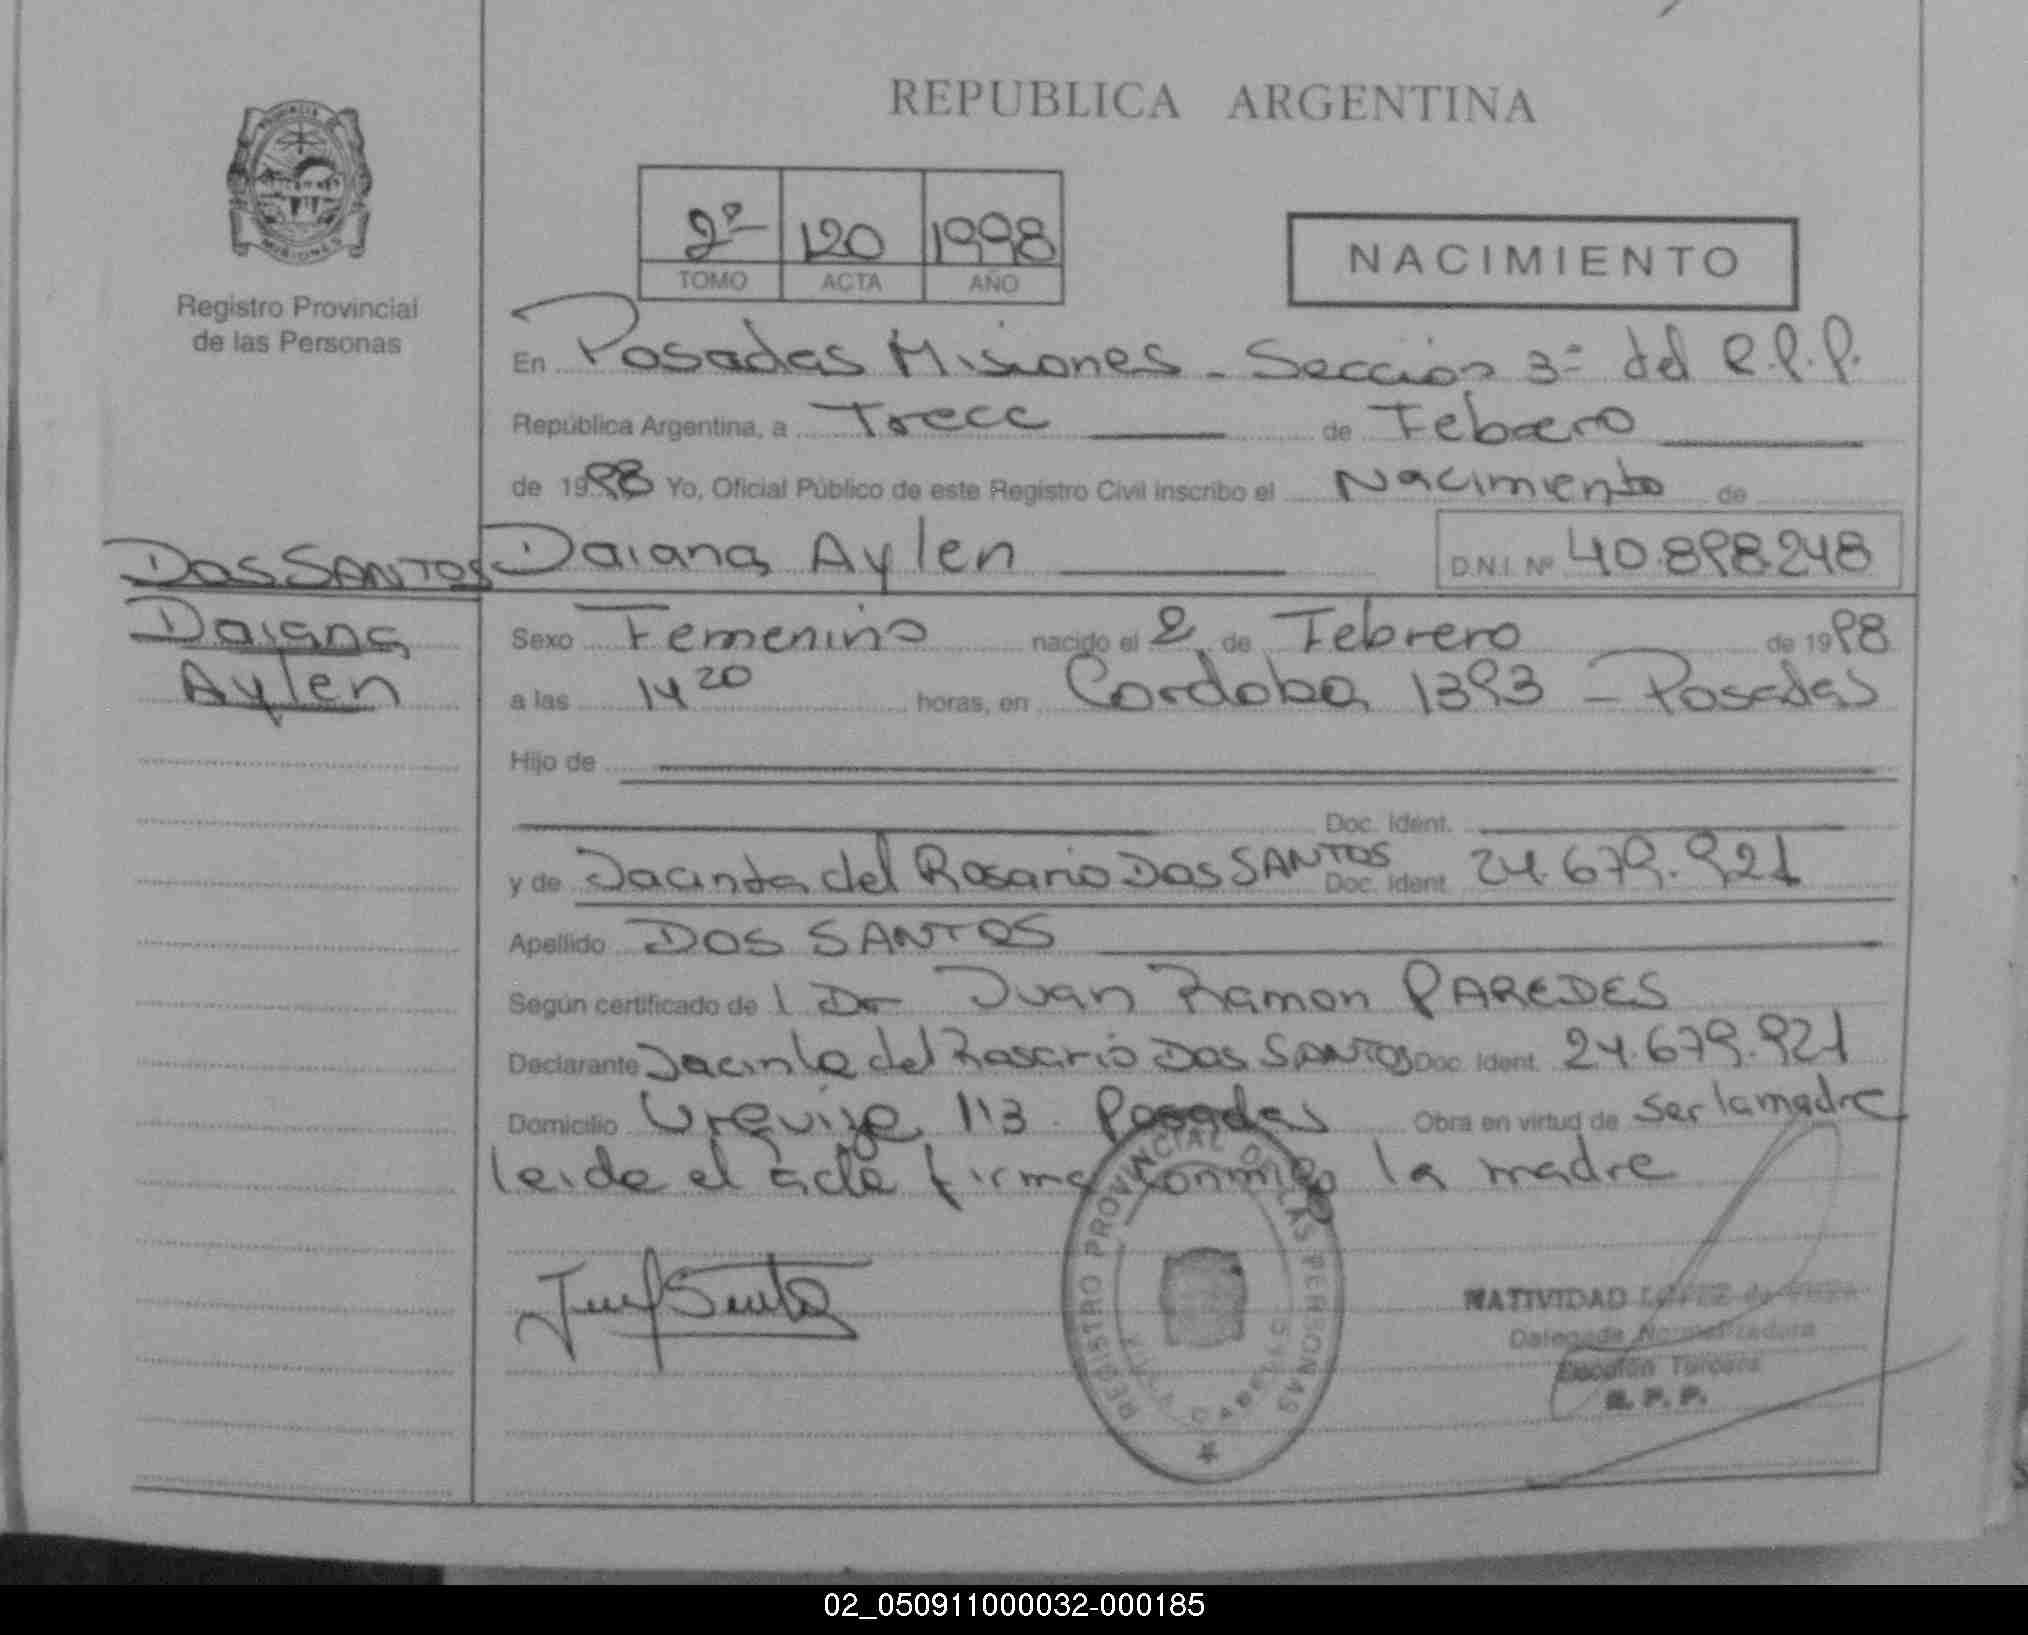 REPUBLICA ARGENTINA
PROVINCIA DE
MISIONES
Registro Provincial
de las Personas
2º 120 1998
TOMO ACTA AÑO
NACIMIENTO
En Posadas Misiones - Sección 3ª del R.P.P.
República Argentina, a Trece de Febrero
de 1998 Yo, Oficial Público de este Registro Civil inscribo el Nacimiento de
DOS SANTOS Daiana Aylen D.N.I. Nº 40.898.248
Daiana
Aylen
Sexo Femenino nacido el 2 de Febrero de 1998
a las 14 20 horas, en Cordoba 1393 - Posadas
Hijo de
Doc. Ident.
y de Jacinta del Rosario Dos SANTOS Doc. Ident. 24.679.921
Apellido DOS SANTOS
Según certificado de l Dr Juan Ramon PAREDES
Declarante Jacinta del Rosario Dos SANTOS Doc. Ident. 24.679.921
Domicilio Urquiza 113 - Posadas Obra en virtud de ser la madre
leida el acta firma conmigo la madre
REGISTRO PROVINCIAL DE LAS PERSONAS
VILLA CABELLO
NATIVIDAD LOPEZ de
Delegada Normalizadora
Sección Tercera
R. P. P.
02_050911000032-000185